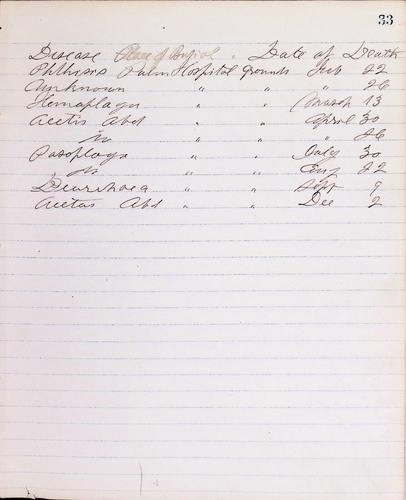 33
Disease Place of Burial " Date of Death
Phthisis Palm Hospital Grounds Feb 22
Unknown " " " 26
Hemaplagia " " March 13
Acetis Abd " " April 30
" " " 26
" " July 30
" " Aug 22
Diarrhoea " " Sept 9
Acetas Abd " " Dec 2